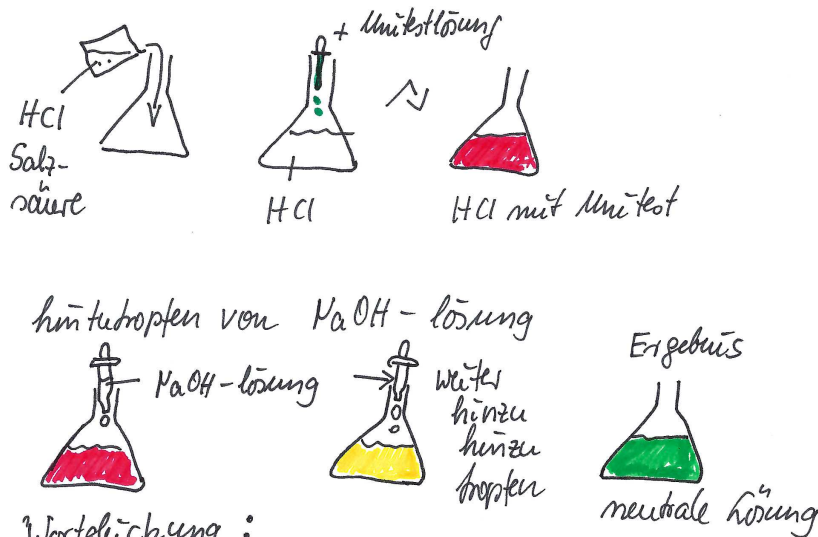 + Unitestlösung
HCl
Salz-
säure
HCl
HCl mit Unitest
hinzutropfen von NaOH-lösung
NaOH-lösung
weiter
hinzu
hinzu
tropfen
Ergebnis
neutrale Lösung
Wortgleichung: